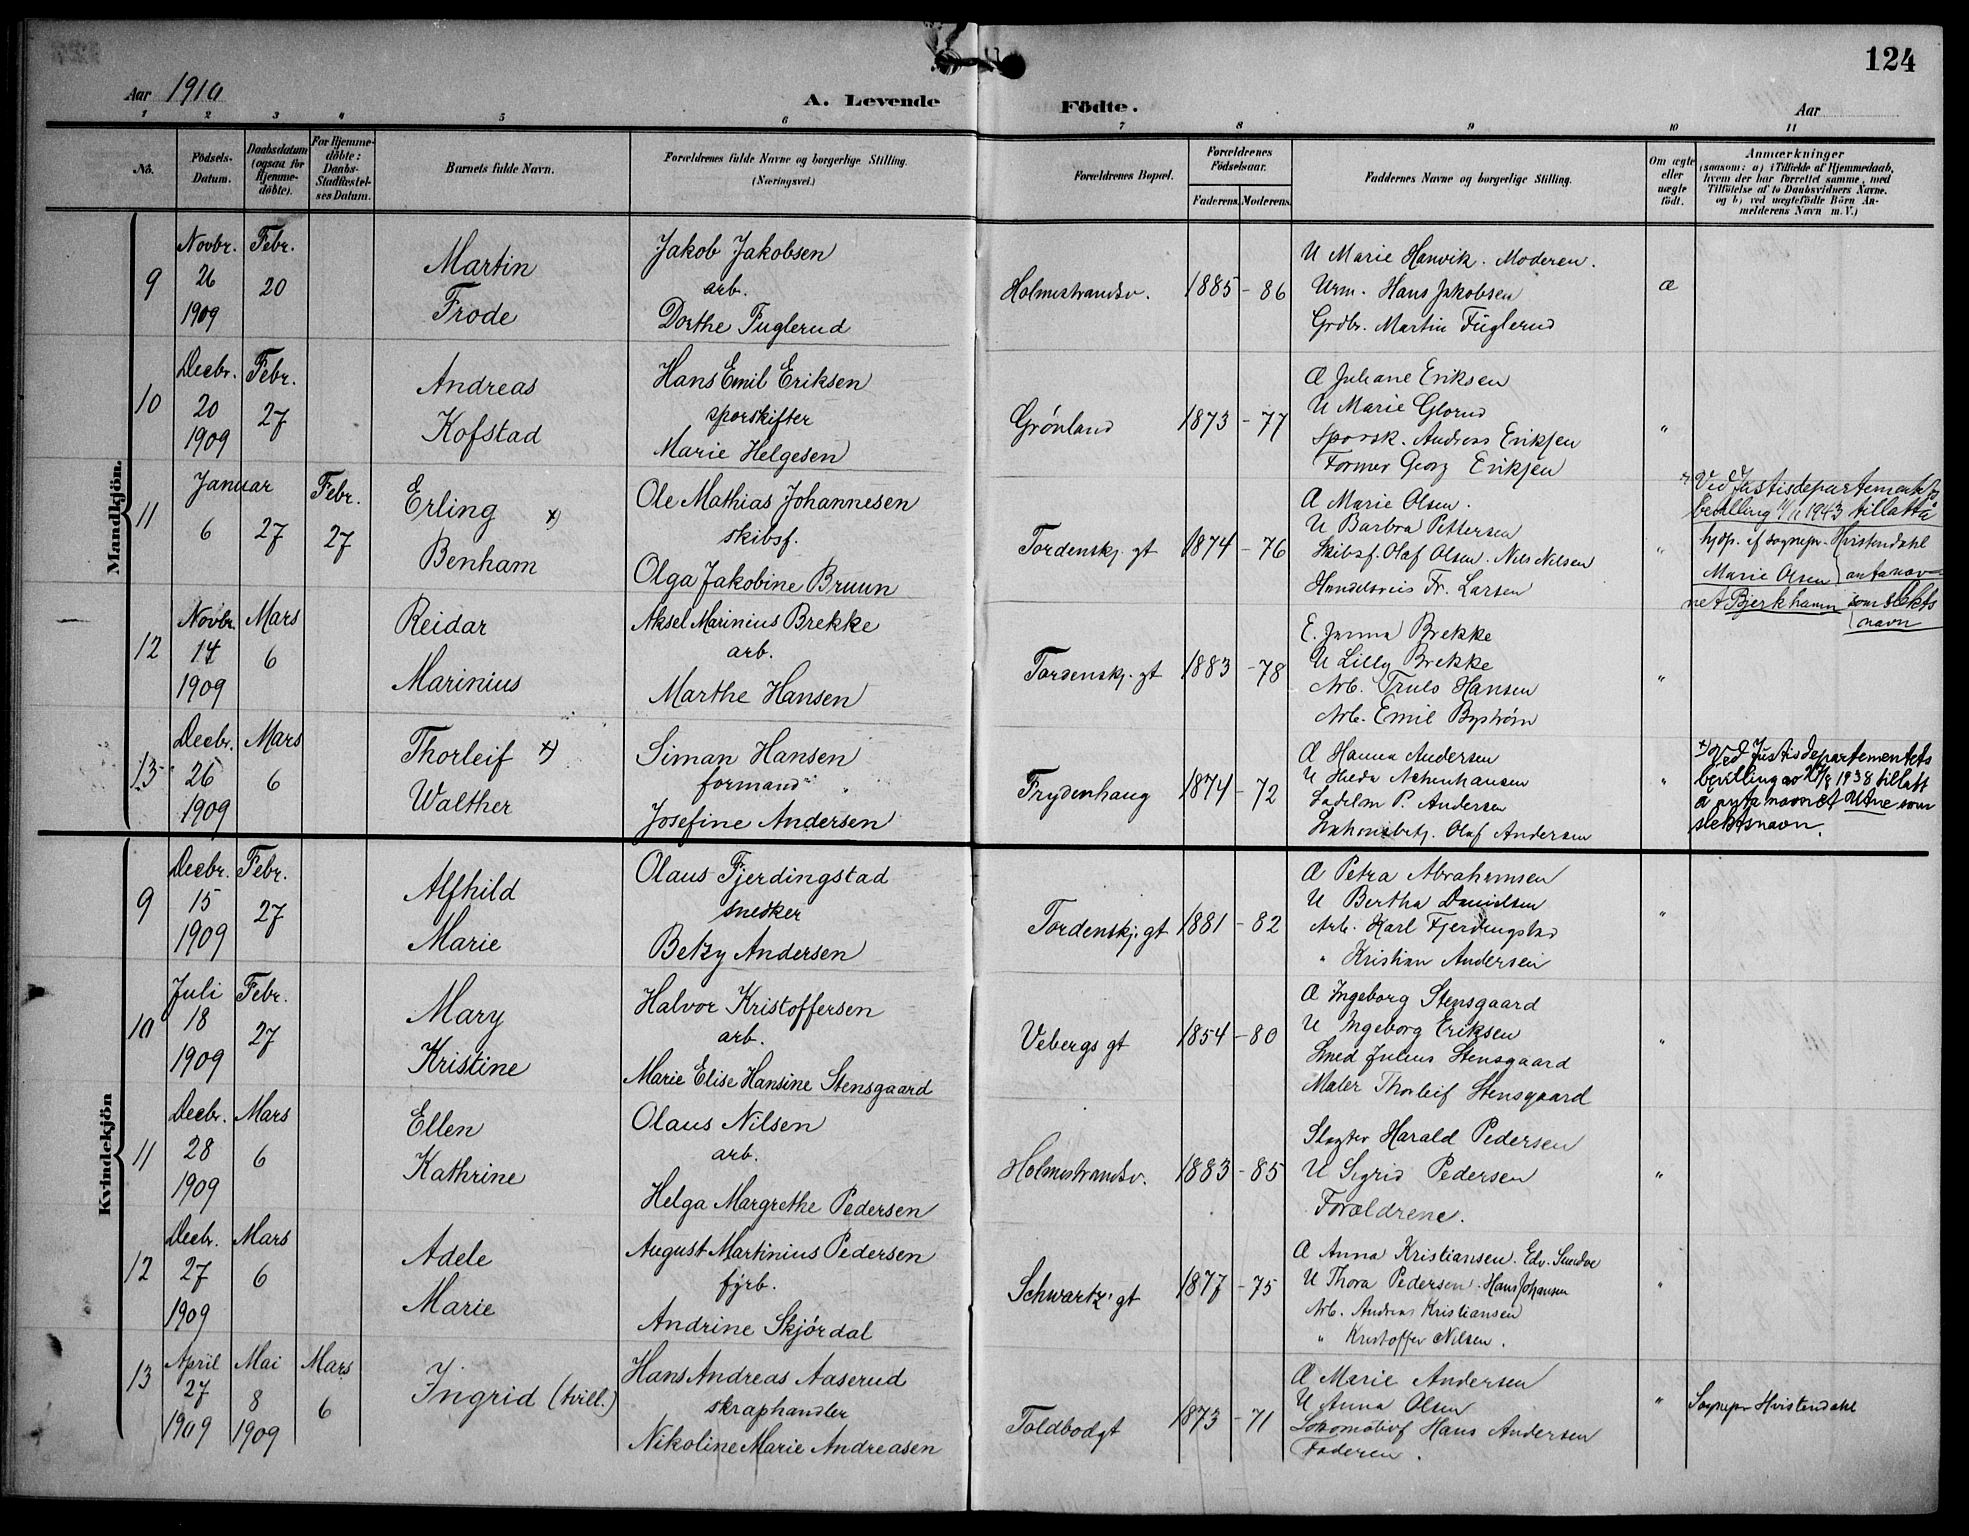 124
Aar 1910
A. Levende Födte.
Aar
1 2 3 4 5 6 7 8 9 10 11
No.
Födsels-Datum.
Daabsdatum (ogsaa for Hjemme-döbte).
For Hjemme-döbte: Daabs-Stadfæstel-ses Datum.
Barnets fulde Navn.
Forældrenes fulde Navne og borgerlige Stilling. (Næringsvei.)
Forældrenes Bopæl.
Forældrenes Födselsaar.
Faderens. Moderens.
Faddernes Navne og borgerlige Stilling.
Om ægte eller uægte födt.
Anmærkninger
(saasom: a) i Tilfælde af Hjemmedaab, hvem der har forrettet samme, med Tilföielse af to Daabsvidners Navne, og b) ved uægtefödte Börn An-melderens Navn m. V.)
Mandkjön.
9
Novbr. 26 1909
Febr. 20
Martin Frode
Jakob Jakobsen
arb.
Dorthe Fuglerud
Holmestrandsv.
1885 - 86
U Marie Hanvik. Moderen.
Urm. Hans Jakobsen
Grdbr. Martin Fuglerud
æ
10
Decbr. 20 1909
Febr. 27
Andreas Kofstad
Hans Emil Eriksen
sporskifter
Marie Helgesen
Grönland
1873 - 77
Æ Juliane Eriksen
U Marie Glorud
Sporsk. Andreas Eriksen
Former Georg Eriksen
"
11
Januar 6
27
Febr. 27
Erling x)
Benham
Ole Mathias Johannesen
skibsf.
Olga Jakobine Bruun
Tordenskj. gt
1874 - 76
Æ Marie Olsen
U Barbra Pettersen
Skibsf. Olaf Olsen. Nils Nilsen
Handelsreis Fr. Larsen
"
x) Ved Justisdepartementets
bevilling 1943 tillatt å
hjdp. af sognepr. Hvistendahl
Marie Olsen anta nav-
net Bjerkhamn som slekts
navn
12
Novbr. 14 1909
Mars 6
Reidar Marinius
Aksel Marinius Brekke
arb.
Marthe Hansen
Tordenskj. gt
1883 - 78
E. Janna Brekke
U Lilly Brekke
Arb. Truls Hansen
Arb. Emil Byström
"
13
Decbr. 26 1909
Mars 6
Thorleif x)
Walther
Siman Hansen
formand
Josefine Andersen
Frydenhaug
1874 - 72
Æ Hanna Andersen
U Hilda
P. Andersen
Olaf Andersen
"
x) Ved Justisdepartementets
bevilling av 1938 tillatt
å anta navnet Utne som
slektsnavn.
Kvindekjön
9
Decbr. 15 1909
Febr. 27
Alfhild Marie
Olaus Fjerdingstad
snedker
Betzy Andersen
Tordenskj. gt
1881 - 82
Æ Petra Abrahamsen
U Bertha Danielsen
Arb. Karl Fjerdingstad
" Kristian Andersen
"
10
Juli 18 1909
Febr. 27
Mary Kristine
Halvor Kristoffersen
arb.
Marie Elise Hansine Stensgaard
Vebergs gt
1854 - 80
Æ Ingeborg Stensgaard
U Ingeborg Eriksen
Smed Julius Stensgaard
Maler Thorleif Stensgaard
"
11
Decbr. 28 1909
Mars 6
Ellen Kathrine
Olaus Nilsen
arb.
Helga Margrethe Pedersen
Holmestrandsv.
1883 - 85
Slagter Harald Pedersen
U Sigrid Pedersen
Forældrene.
"
12
Decbr. 27 1909
Mars 6
Adele Marie
August Martinius Pedersen
fyrb.
Andrine Skjördal
Schwartz' gt
1877 - 75
Æ Anna Kristiansen. Edv. Sundve
U Thora Pedersen. Hans Johansen
Arb. Andreas Kristiansen
" Kristoffer Nilsen.
"
13
April 27 1909
Mai 8 1909
Mars 6
Ingrid (tvill.)
Hans Andreas Aaserud
skraphandler
Nikoline Marie Andreasen
Toldbodgt
1873 - 71
Æ Marie Andersen
U Anna Olsen
Lokomotivf Hans Andersen
Faderen.
"
Sognepr Hvistendahl